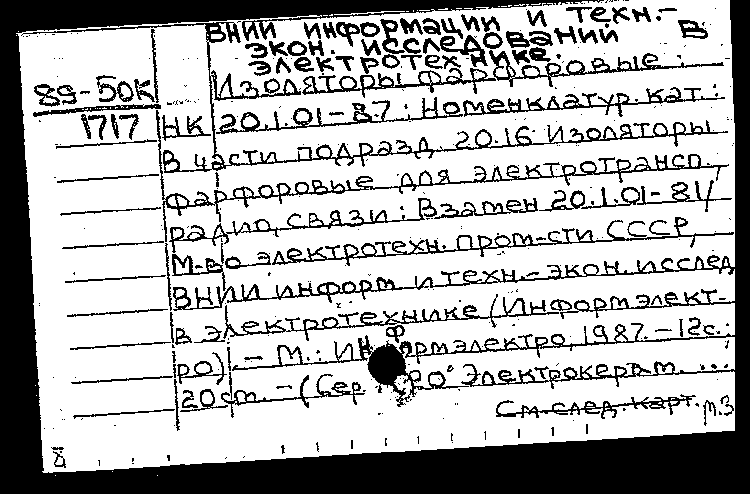 ВНИИ информации и техн.-
экон. исследований В
электротехнике.
89-50К Изоляторы фарфоровые:
1717 НК 20.1.01-87: Номенклатур. кат.:
В части подразд. 20.16 Изоляторы
фарфоровые для электротрансп.,
радио, связи: Взамен 20.1.01-81/
М-во электротехн. пром-сти СССР,
ВНИИ информ и техн.-экон. исслед
в электротехнике (Информэлект-
ро). - М.: Информэлектро, 1987. - 12с.;
20см. - (Сер. Электрокерам. ...;
См. след. карт. т.3
8